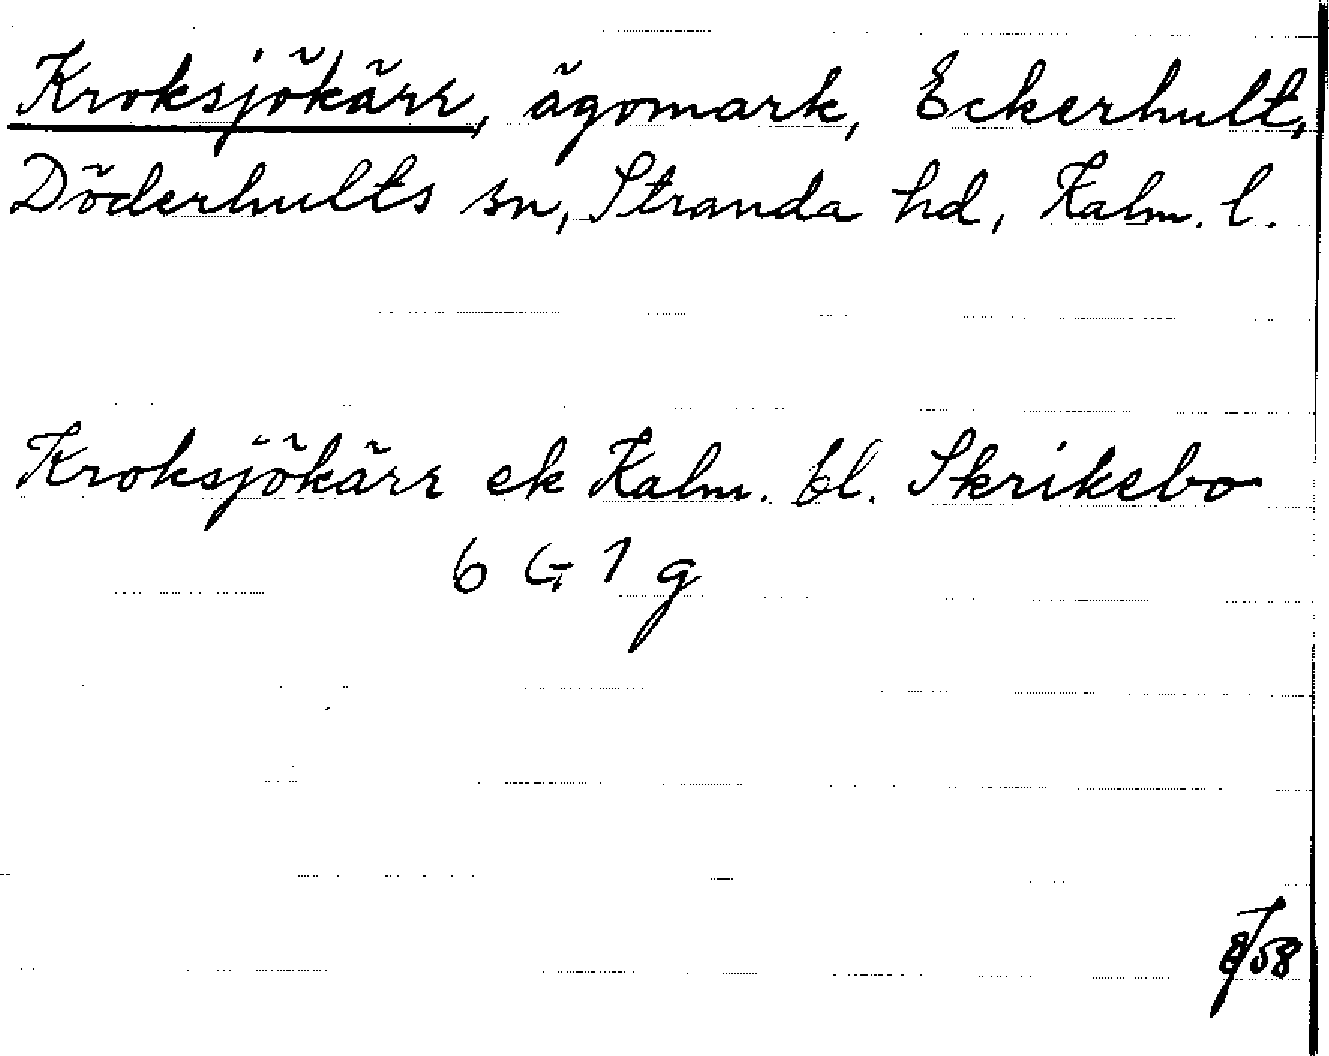 Kroksjökärr, ägomark, Eckerhult,
Döderhults sn, Stranda hd, Kalm. l.
Kroksjökärr ek Kalm. bl. Skrikebo
6 G 1 g